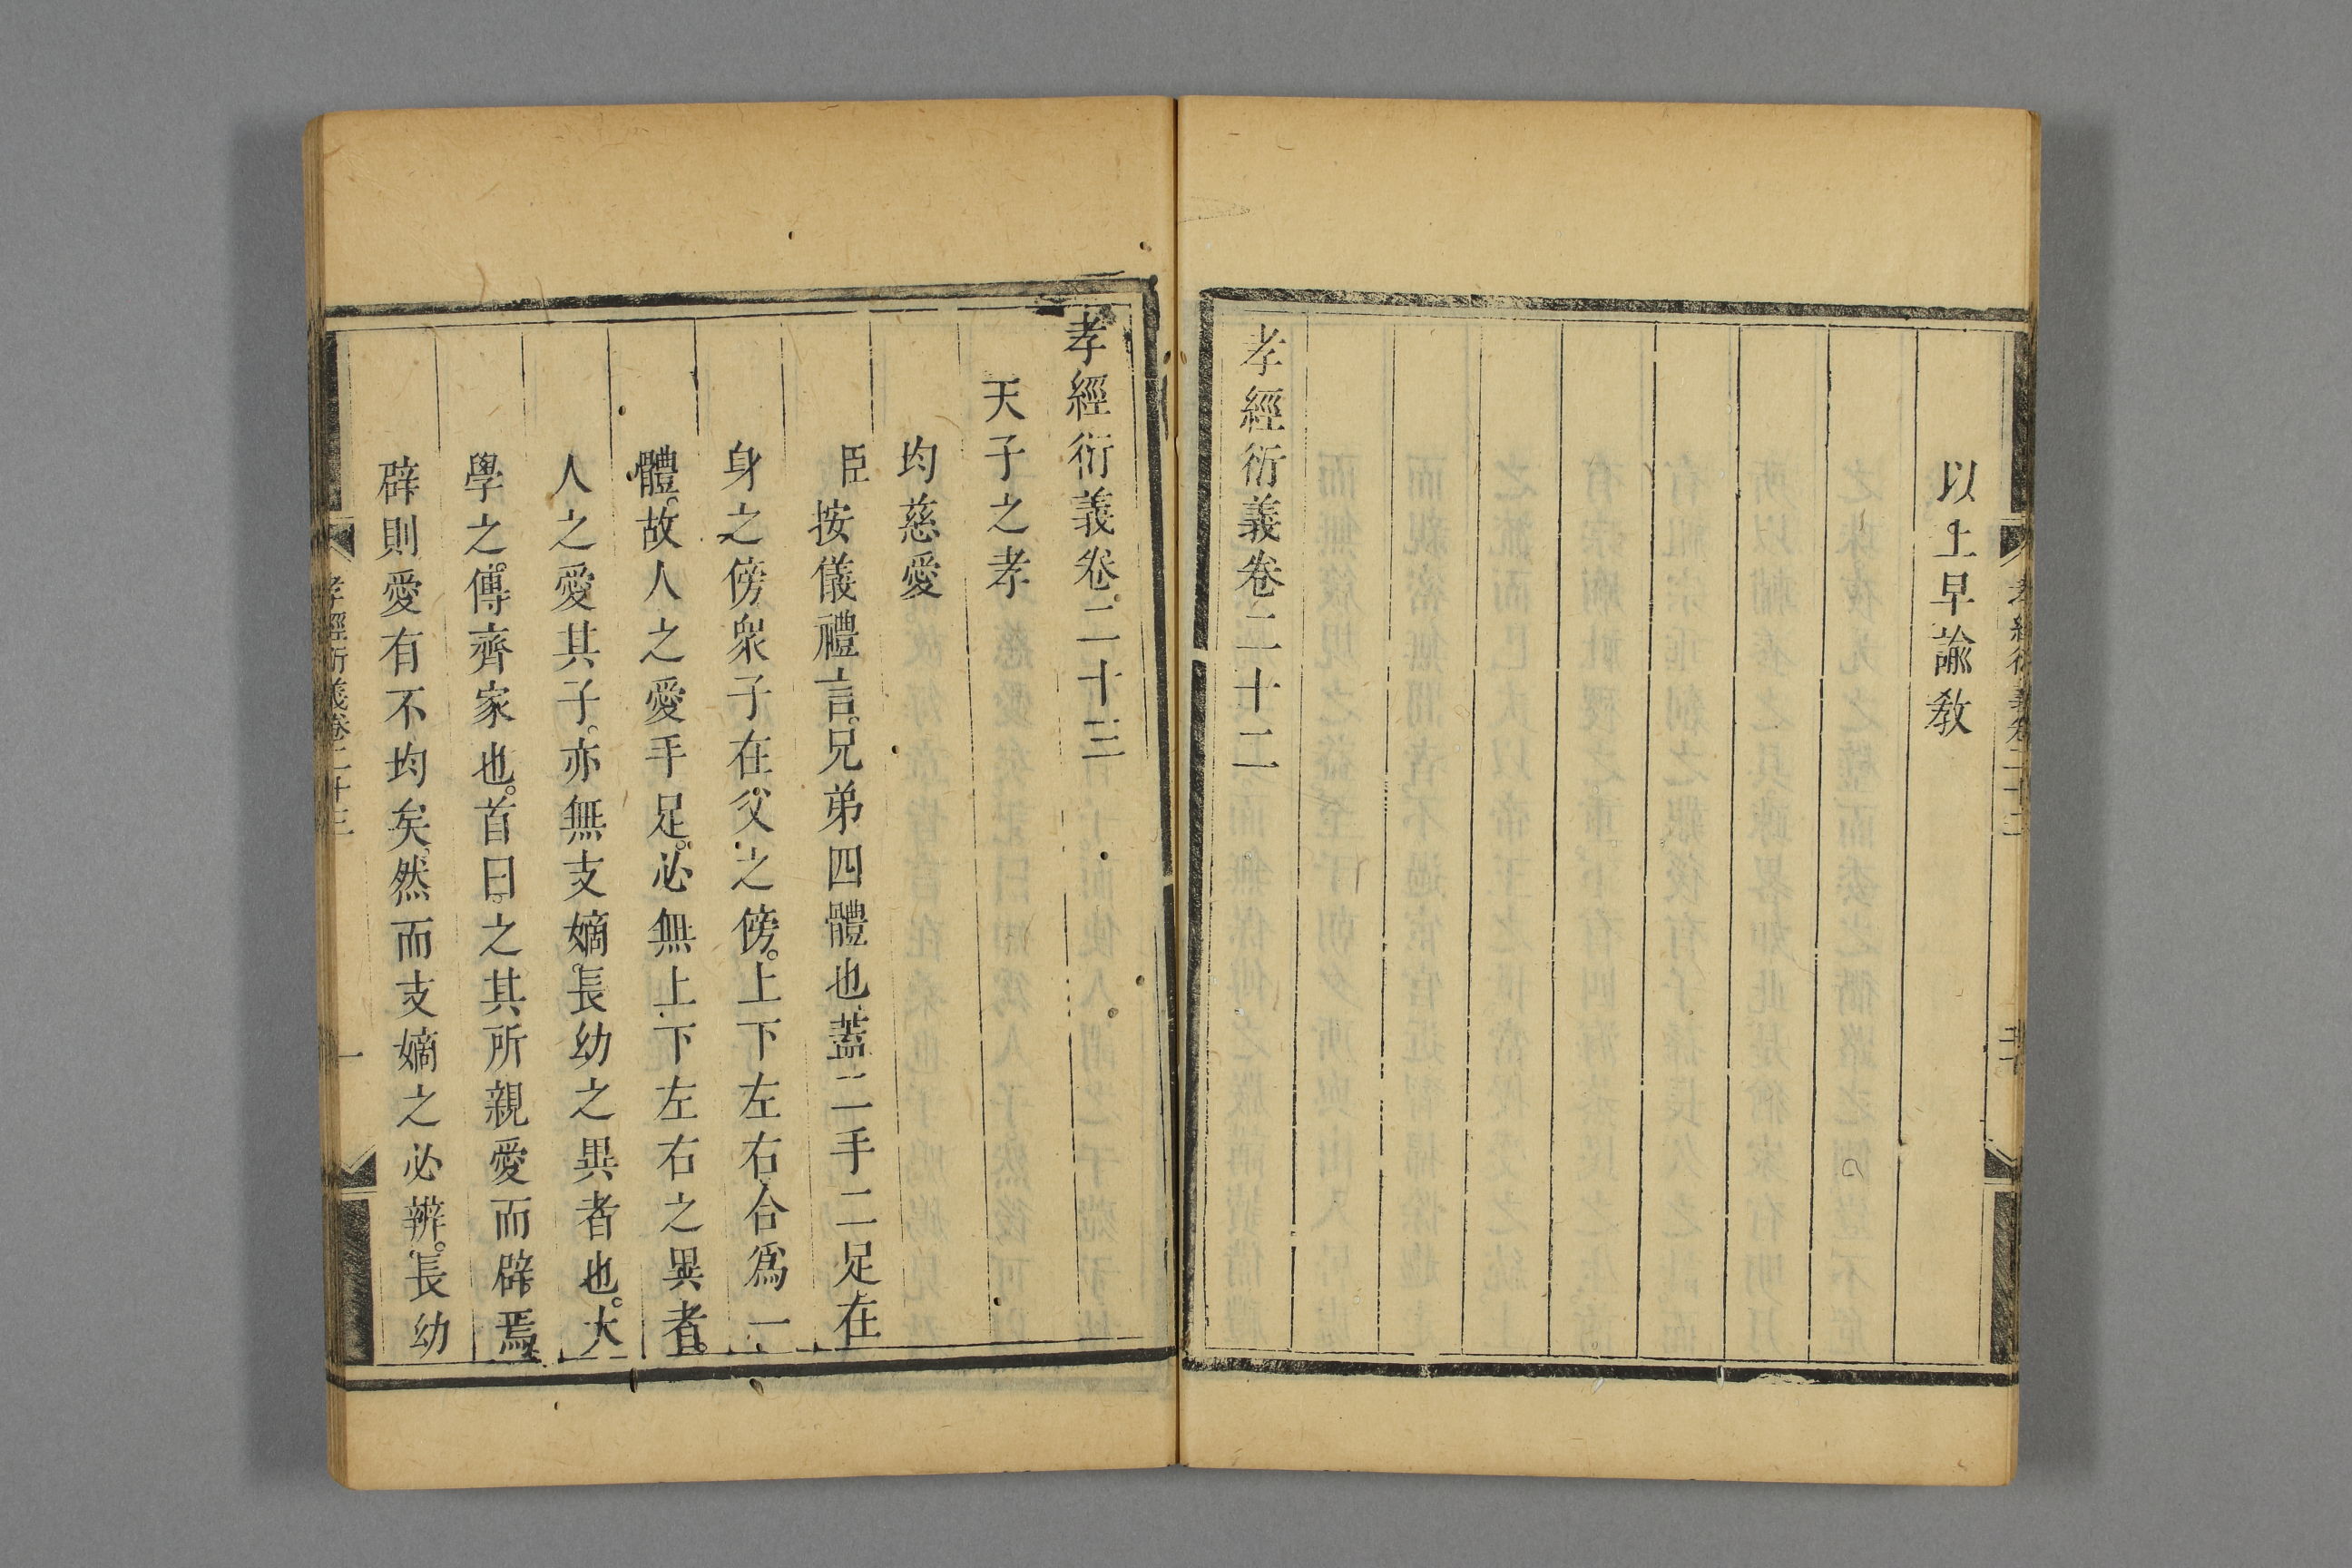 以上早諭敎
孝經衍義卷二十二
孝經衍義卷二十三
天子之孝
均慈愛
臣按儀禮言。兄弟四體也。蓋二手二足在
身之傍。衆子在父之傍。上下左右。合爲一
體。故人之愛手足。必無上下左右之異者。
人之愛其子。亦無支嫡長幼之異者也。大
學之傳齊家也。首曰。之其所親愛而辟焉。
辟則愛有不均矣。然而支嫡之必辨。長幼
孝經衍義卷二十三
一